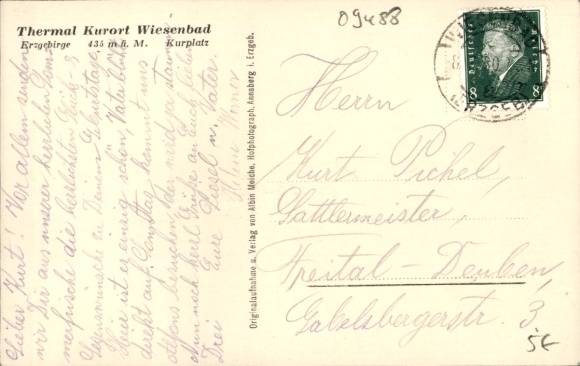 Thermal Kurort Wiesenbad
Erzgebirge 435 m ü. M. Kurplatz
09488
Deutsches Reich
8 8
Originalaufnahme u. Verlag von Albin Meiche, Hofphotograph, Annaberg i. Erzgeb.
Herrn
Kurt Pichel,
Sattlermeister,
Freital-Deuben,
Gabelsbergerstr. 3
5€
Lieber Kurt! Vor allem senden
wir Dir aus unserer herrlichen
die herzlichsten Glück- &
Segenswünsche zu Deinem Geburtstage,
hier ist es einzig schön, Vater bleibt
direkt auf Dienstag kommt uns
öfters besuchen, der
Nun noch herzl. Grüße an Euch lieben
Drei Eure Liesel u. Vater.